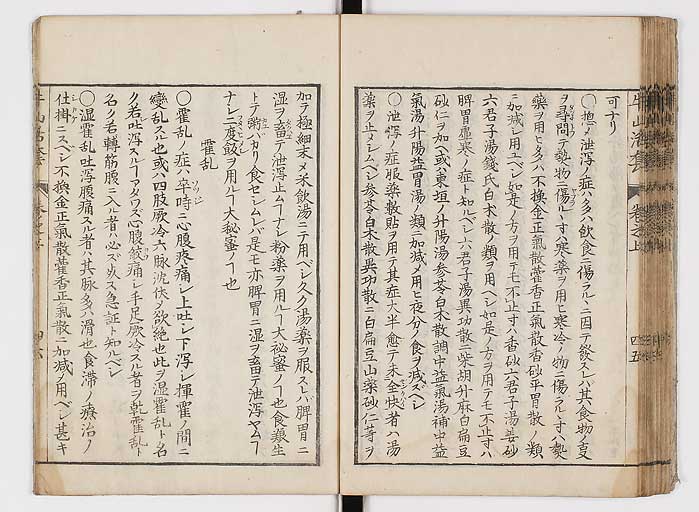 可ナリ
〇惣〆泄瀉ノ症ハ多ハ飲食ニ傷ラルヽニ因テ發スレバ其食物ノ㕝
ヲ尋問テ熱物ニ傷ルトキハ寒薬ヲ用ヒ寒冷ノ物ニ傷ラルトキハ熱
藥ヲ用ヒ多ハ不換金正氣散藿香正氣散香砂平胃散ノ類
ニ加減シ用ユベシ如是ノ方ヲ用テモ不止寸ハ香砂六君子湯姜砂
六君子湯錢氏白朮散ノ類ヲ用ベシ如是ノ方ヲ用テモ不止寸ハ
脾胃虚寒ノ症ト知ルベシ六君子湯異功散ニ柴胡升麻白扁豆
砂仁ヲ加ヘ或ハ東垣ノ升陽湯参苓白朮散調中益氣湯補中益
氣湯升陽益胃湯ノ類ニ加減〆用ヒ夜分ノ食ヲ減ズベシ
〇泄瀉ノ症服薬敷貼ヲ用テ其症大半愈テ未全快者ハ湯
藥ヲ止メシムベシ参苓白朮散異功散ニ白扁豆山薬砂仁等ヲ
加テ極細末〆米飲湯ニテ用ベシ久ク湯藥ヲ服スレバ脾胃ニ
湿ヲ畜テ泄瀉止ムヿナシ粉藥ヲ用ルヿ大秘蜜ノヿ也食痕生
トテ粥バカリ食セシムレバ是モ亦脾胃ニ湿ヲ畜テ泄瀉ヤムヿ
ナシ二度飯ヲ用ルヿ大秘蜜ノヿ也
霍乱
〇霍乱ノ症ハ卒時ニ心腹疼痛シ上吐シ下瀉シ揮霍ノ間ニ
變乱スル也或ハ四肢厥冷六脉沈伏〆欲絶也此ヲ湿霍乱ト名
ク若吐瀉スルヿアタワズ心腹絞痛シ手足厥冷スル者ヲ乾霍乱ト
名ク若轉筋腹ニ入ル者ハ必ズ死ス急証ト知ルベシ
〇湿霍乱吐瀉腹痛スル者ハ其脉多ハ滑也食滞ノ療治ノ
仕掛ニスベシ不換金正氣散藿香正氣散ニ加減〆用ベシ甚キ